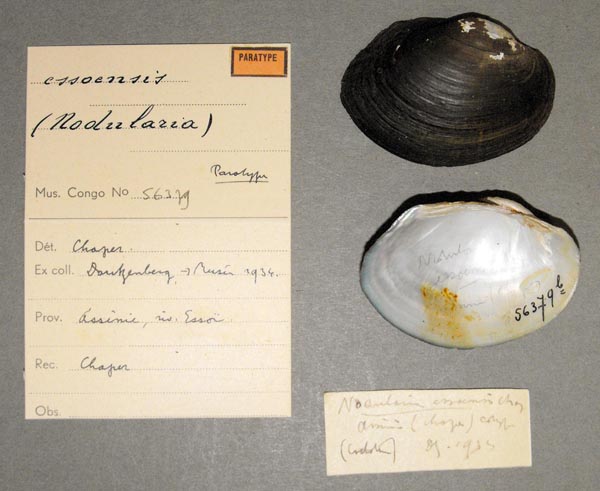 PARATYPE
essoensis
(Nodularia)
Paratype
Mus. Congo No 56379
Dét. Chaper.
Ex coll. Dautzenberg, → 1934.
Prov. Assinie, riv. Essoï
Rec. Chaper
Obs.
Nodularia
essoensis
56379 b
Nodularia essoensis Chap
Assinie (Chaper) cotype
1934